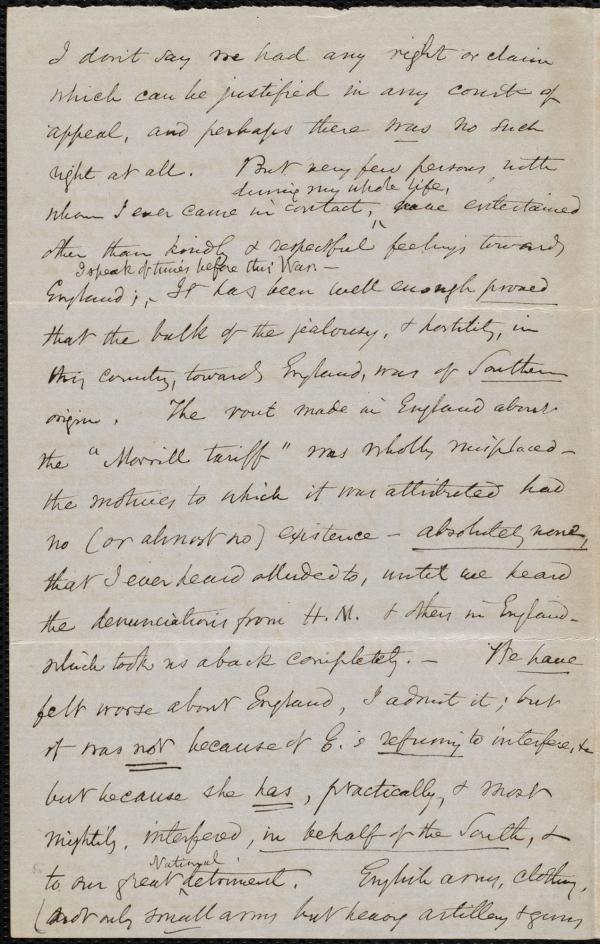 I don't say we had any right or claim
which can be justified in any court of
appeal, and perhaps there was no such
right at all. But very few persons, with
during my whole life,
whom I ever came in contact, have entertained
other than kindly & respectful feelings towards
I speak of times before this War.—
England; It has been well enough proved
that the bulk of the jealousy, & hostility, in
this country, towards England, was of Southern
origin. The rout made in England about
the "Morrill tariff" was wholly misplaced—
the motives to which it was attributed had
no (or almost no) existence — absolutely none,
that I ever heard alluded to, until we heard
the denunciations from H. M. & others in England—
which took us aback completely. — We have
felt worse about England, I admit it; but
it was not because of E.'s refusing to interfere, &c
but because she has, practically, & most
mightily, interfered, in behalf of the South, &
National
to our great detriment. English arms, clothing,
(& not only small arms but heavy artillery & guns